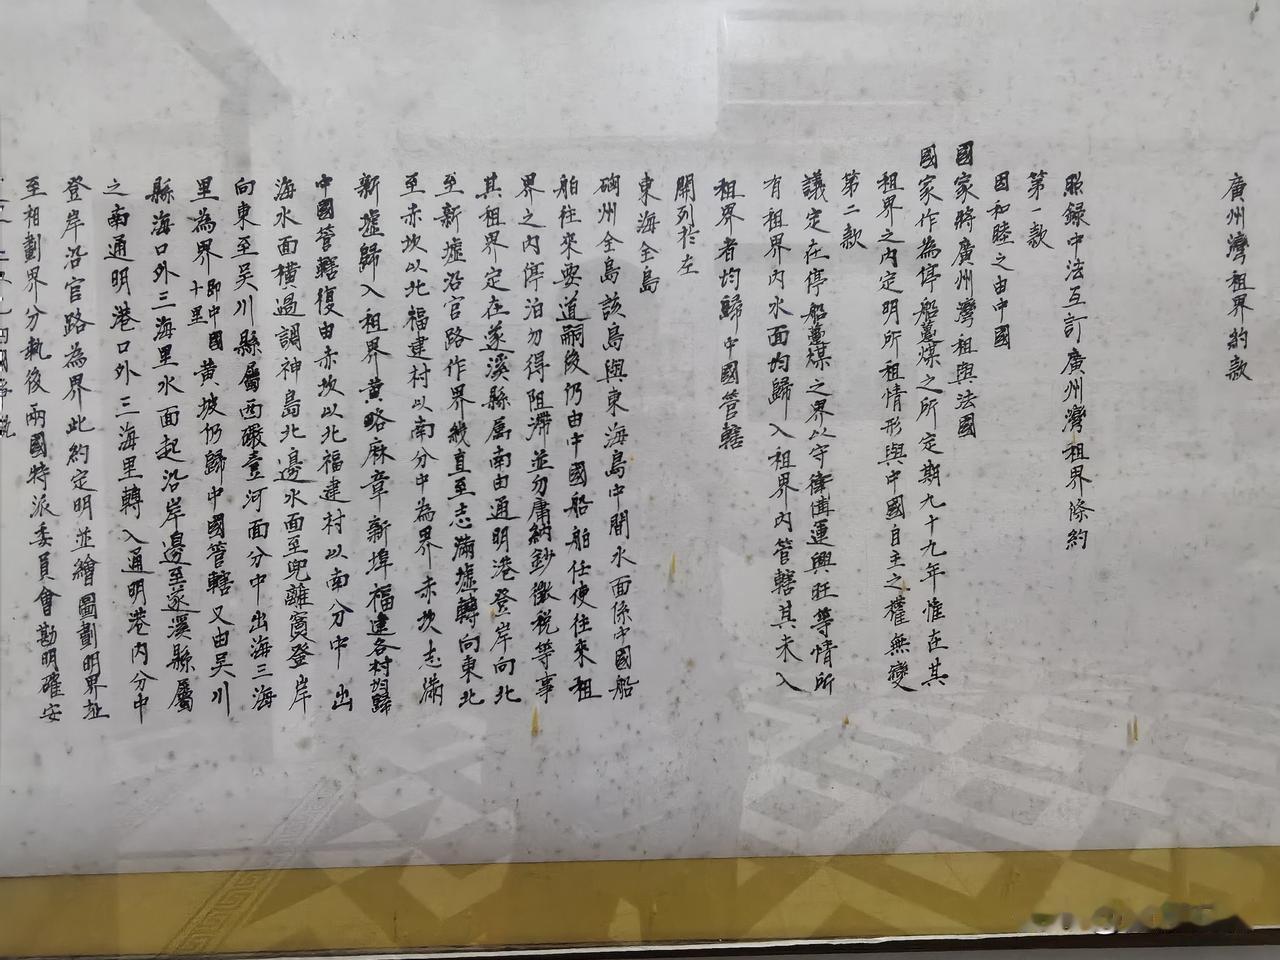 廣州灣租界約款
照録中法互訂廣州灣租界條約
第一款
因和睦之由中國
國家將廣州灣租與法國
國家作為停船躉煤之所定期九十九年惟在其
租界之内定明所租情形與中國自主之權無變
第二款
議定在停船躉煤之界以守衛備運興旺等情所
有租界内水面均歸入租界内管轄其未入
租界者均歸中國管轄
開列於左
東海全島
硇州全島該島與東海島中間水面係中國船
舶往來要道嗣後仍由中國船舶任便往來租
界之内停泊勿得阻滯並勿庸納鈔徵税等事
其租界定在遂溪縣屬南由通明港登岸向北
至新墟沿官路作界綫直至志滿墟轉向東北
至赤坎以北福建村以南分中為界赤坎志滿
新墟歸入租界黄略麻章新埠福建各村均歸
中國管轄復由赤坎以北福建村以南分中出
海水面横過調神島北邊水面至兜離窩登岸
向東至吴川縣屬西礮臺河面分中出海三海
里為界即中國十里黄坡仍歸中國管轄又由吴川
縣海口外三海里水面起沿岸邊至遂溪縣屬
之南通明港口外三海里轉入通明港内分中
登岸沿官路為界此約定明並繪圖劃明界址
至相劃界分執後兩國特派委員會勘明確妥